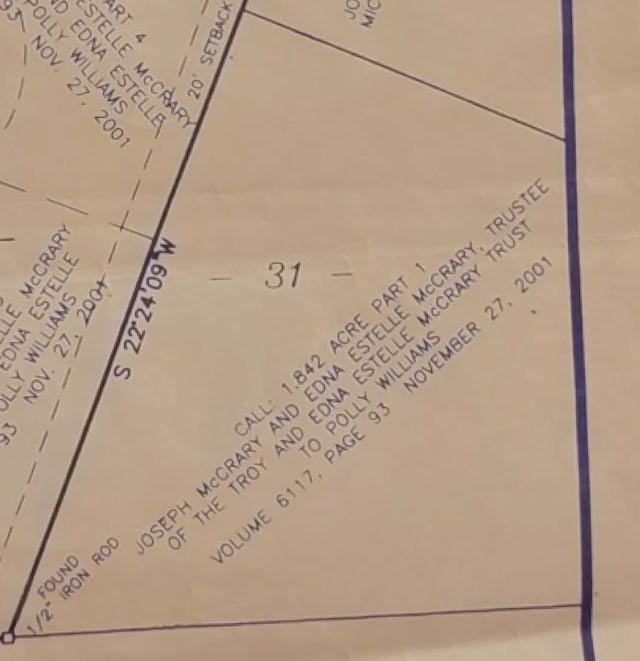 ART 4
ESTELLE McCRARY
ND EDNA ESTELLE
POLLY WILLIAMS
93 NOV. 27, 2001
20' SETBACK
JO
MIC
S 22°24'09" W
- 31 -
LLE McCRARY
EDNA ESTELLE
OLLY WILLIAMS
93 NOV. 27, 2001
CALL: 1.842 ACRE PART 1
JOSEPH McCRARY AND EDNA ESTELLE McCRARY, TRUSTEE
OF THE TROY AND EDNA ESTELLE McCRARY TRUST
TO POLLY WILLIAMS
VOLUME 6117, PAGE 93 NOVEMBER 27, 2001
FOUND
1/2" IRON ROD